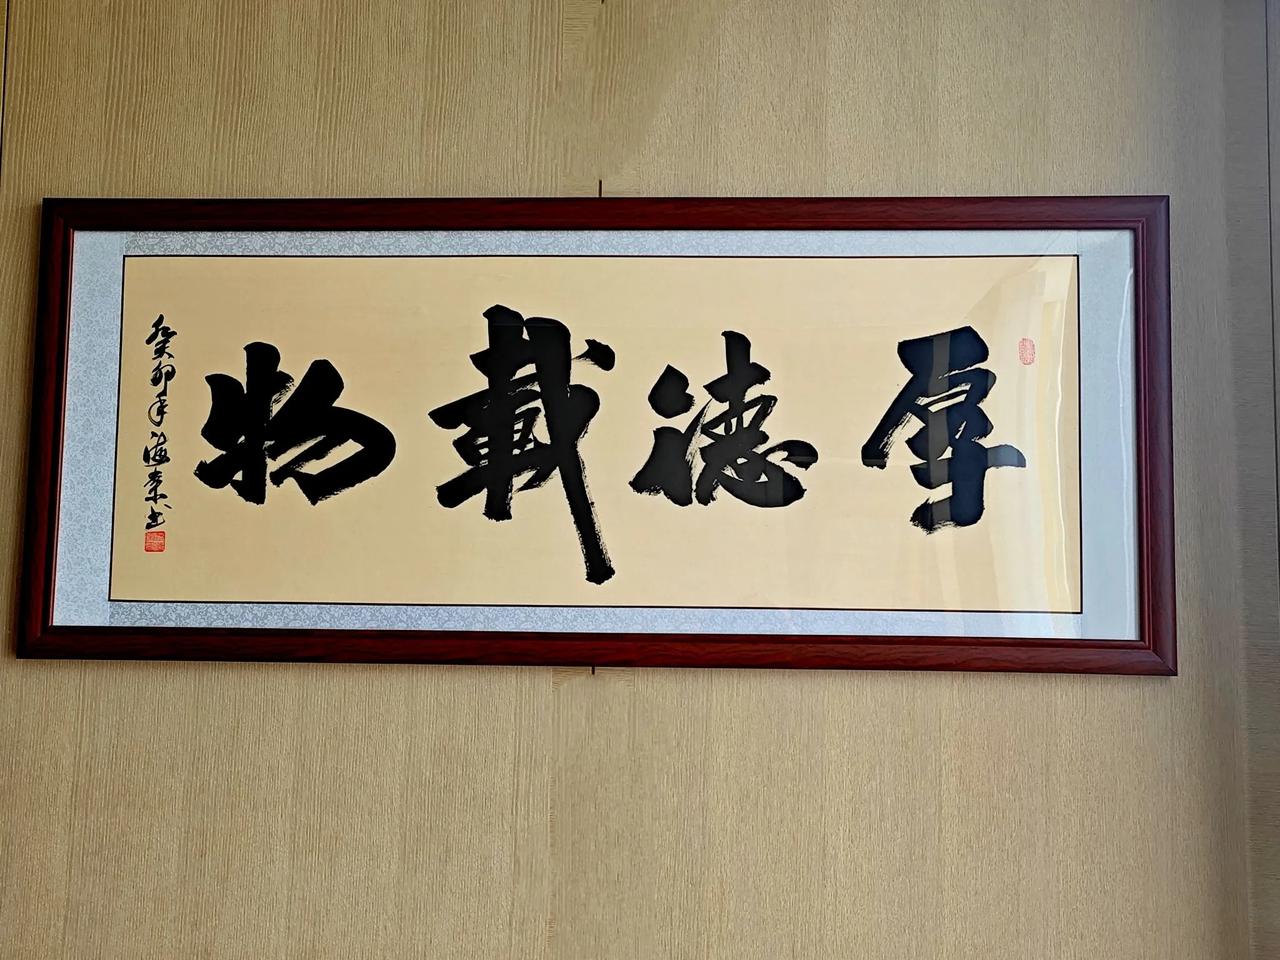 厚德載物
癸卯年海泉书